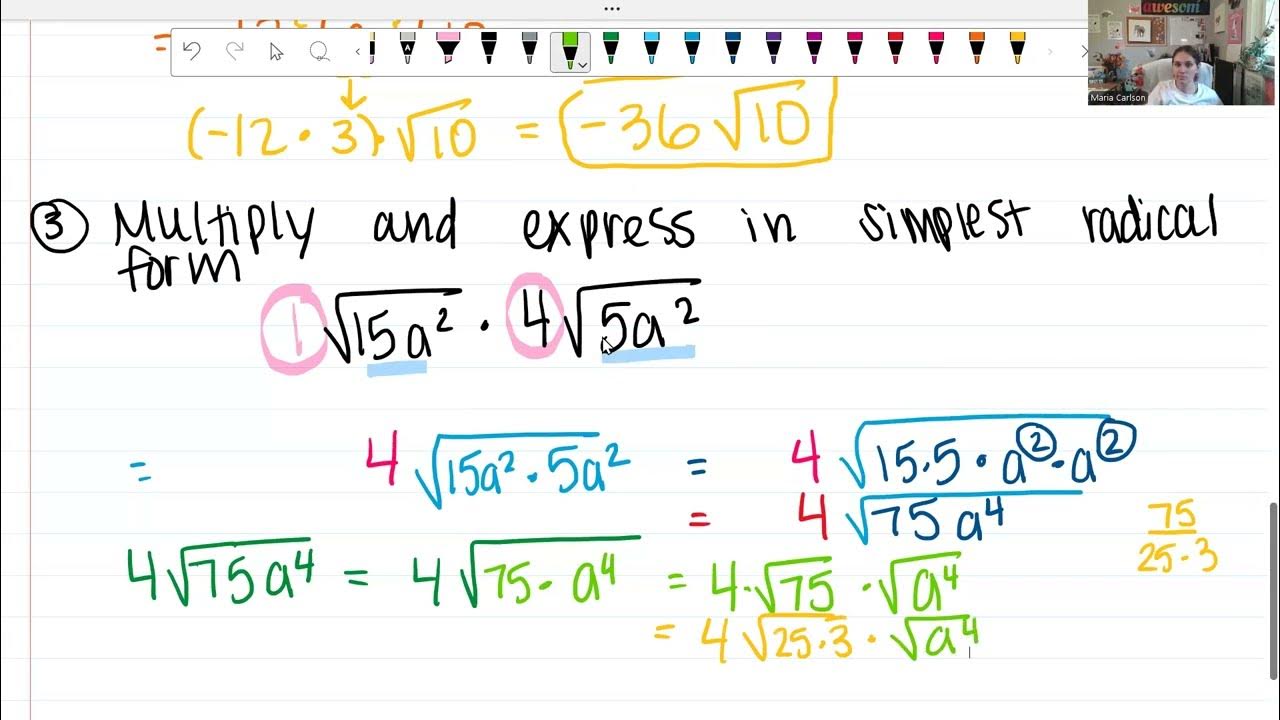 awesom
Maria Carlson
(-12 · 3) · √10 = -36√10
③ Multiply and express in simplest radical
form
1√15a² · 4√5a²
= 4√15a² · 5a² = 4√15·5 · a² · a²
= 4√75a⁴
75
25 · 3
4√75a⁴ = 4√75 · a⁴ = 4 · √75 · √a⁴
= 4√25·3 · √a⁴